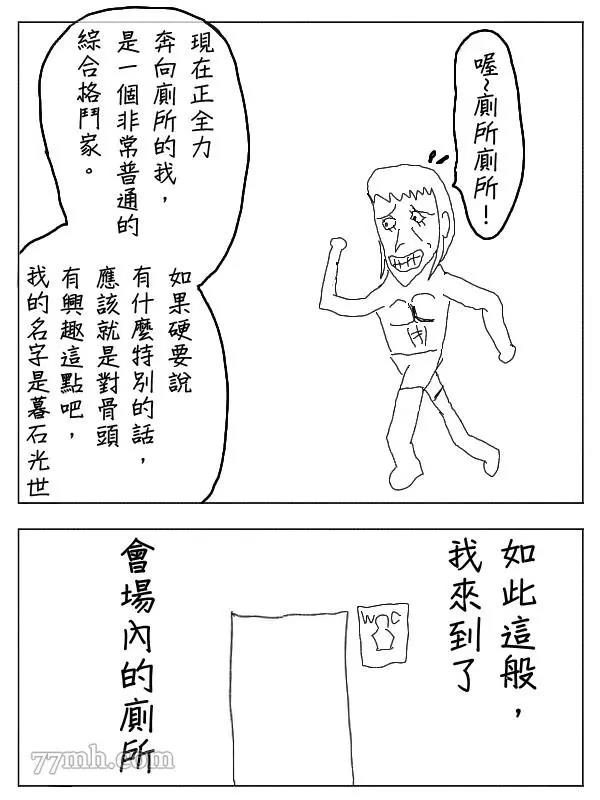 喔~廁所廁所！
現在正全力
奔向廁所的我，
是一個非常普通的
綜合格鬥家。
如果硬要說
有什麼特別的話，
應該就是對骨頭
有興趣這點吧，
我的名字是暮石光世
如此這般，
我來到了
WC
會場內的廁所
77mh.com